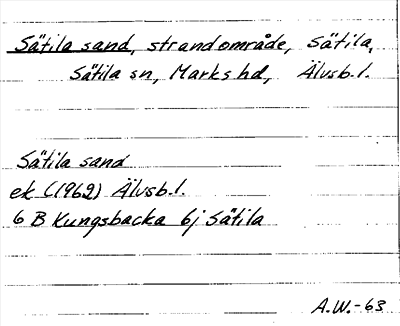 Sätila sand, strandområde, Sätila,
Sätila sn, Marks hd, Älvsb. l.
Sätila sand
ek (1962) Älvsb. l.
6 B Kungsbacka 6j Sätila
A.W.-63